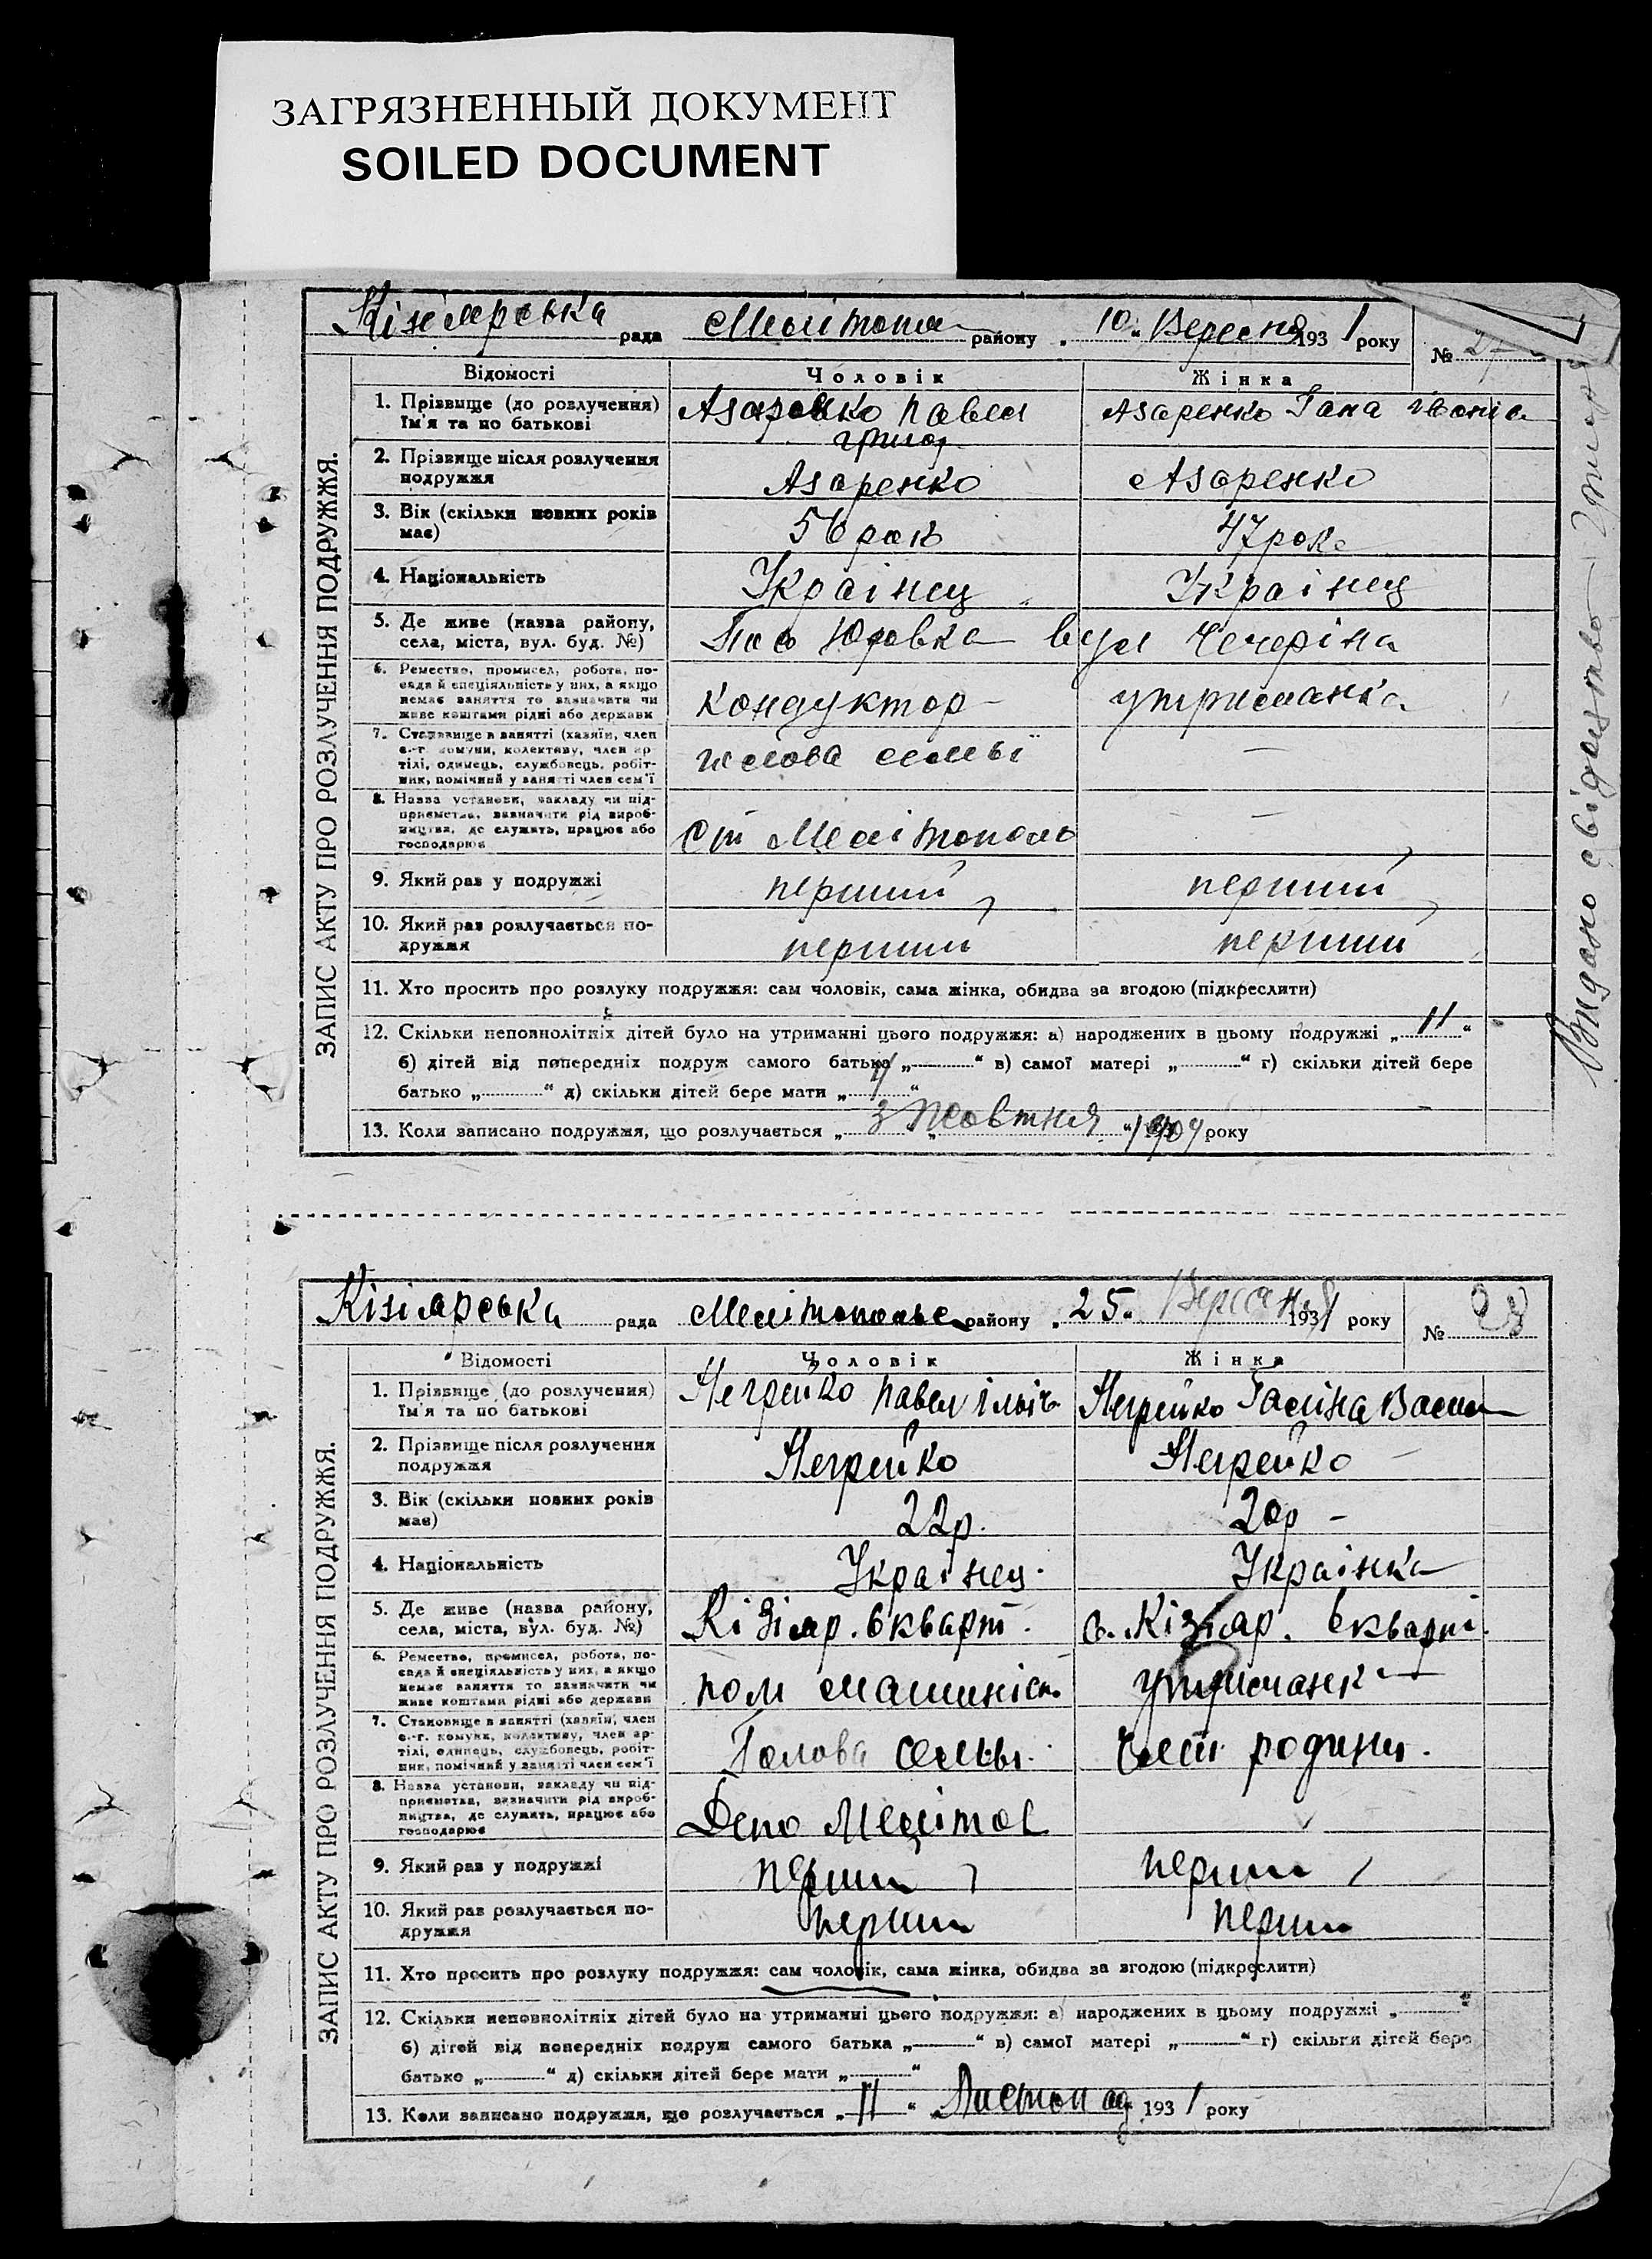 ЗАГРЯЗНЕННЫЙ ДОКУМЕНТ
SOILED DOCUMENT
Кізіярська рада Мелітопол району „10“ Вересня 1931 року №
ЗАПИС АКТУ ПРО РОЗЛУЧЕННЯ ПОДРУЖЖЯ.
Відомості Чоловік Жінка
1. Прізвище (до розлучення) Ім'я та по батькові Азаренко Павел Григор. Азаренко Гана Іванів
2. Прізвище після розлучення подружжя Азаренко Азаренко
3. Вік (скільки повних років має) 56 рок 47 рок
4. Національність Украінец Украінец
5. Де живе (назва району, села, міста, вул. буд. №) Пос Юровка вул Чечеріна
6. Ремество, промисел, робота, по-
сада й спеціяльність у них, а якщо
немає заняття то зазначити чи
живе коштами рідні або держави Кондуктор утриманка
7. Становище в занятті (хазяїн, член
с.-г. комуни, колективу, член ар-
тілі, одинець, службовець, робіт-
ник, помічний у занятті член сем'ї голова семьї —
8. Назва установи, закладу чи під-
приємства, зазначити рід вироб-
ництва, де служить, працює або
господарює Ст Мелітополь —
9. Який раз у подружжі перший перший
10. Який раз розлучається по-
дружжя перший перший
11. Хто просить про розлуку подружжя: сам чоловік, сама жінка, обидва за згодою (підкреслити)
12. Скільки неповнолітніх дітей було на утриманні цього подружжя: а) народжених в цьому подружжі „ “
б) дітей від попередніх подруж самого батька „ “ в) самої матері „ “ г) скільки дітей бере
батько „ “ д) скільки дітей бере мати „ “
13. Коли записано подружжя, що розлучається „3“ Жовтня 1904 року
Видано свідоцтво
Кізіярська рада Мелітопольс району „25“ Вересня 1931 року № 28
ЗАПИС АКТУ ПРО РОЗЛУЧЕННЯ ПОДРУЖЖЯ.
Відомості Чоловік Жінка
1. Прізвище (до розлучення) Ім'я та по батькові Негрейко Павел Ільіч Негрейко Галіна Васил
2. Прізвище після розлучення подружжя Негрейко Негрейко
3. Вік (скільки повних років має) 22р. 20р
4. Національність Украінец. Украінка
5. Де живе (назва району, села, міста, вул. буд. №) Кізіяр. 6 кварт. с. Кізіяр. 6 кварт.
6. Ремество, промисел, робота, по-
сада й спеціяльність у них, а якщо
немає заняття то зазначити чи
живе коштами рідні або держави пом машиніст утриманк
7. Становище в занятті (хазяїн, член
с.-г. комуни, колективу, член ар-
тілі, одинець, службовець, робіт-
ник, помічний у занятті член сем'ї Голова семьи. член родини.
8. Назва установи, закладу чи під-
приємства, зазначити рід вироб-
ництва, де служить, працює або
господарює Депо Меліто
9. Який раз у подружжі перши перши
10. Який раз розлучається по-
дружжя перши перши
11. Хто просить про розлуку подружжя: сам чоловік, сама жінка, обидва за згодою (підкреслити)
12. Скільки неповнолітніх дітей було на утриманні цього подружжя: а) народжених в цьому подружжі „ “
б) дітей від попередніх подруж самого батька „ “ в) самої матері „ “ г) скільки дітей бере
батько „ “ д) скільки дітей бере мати „ “
13. Коли записано подружжя, що розлучається „11“ „Листопад 1931 року